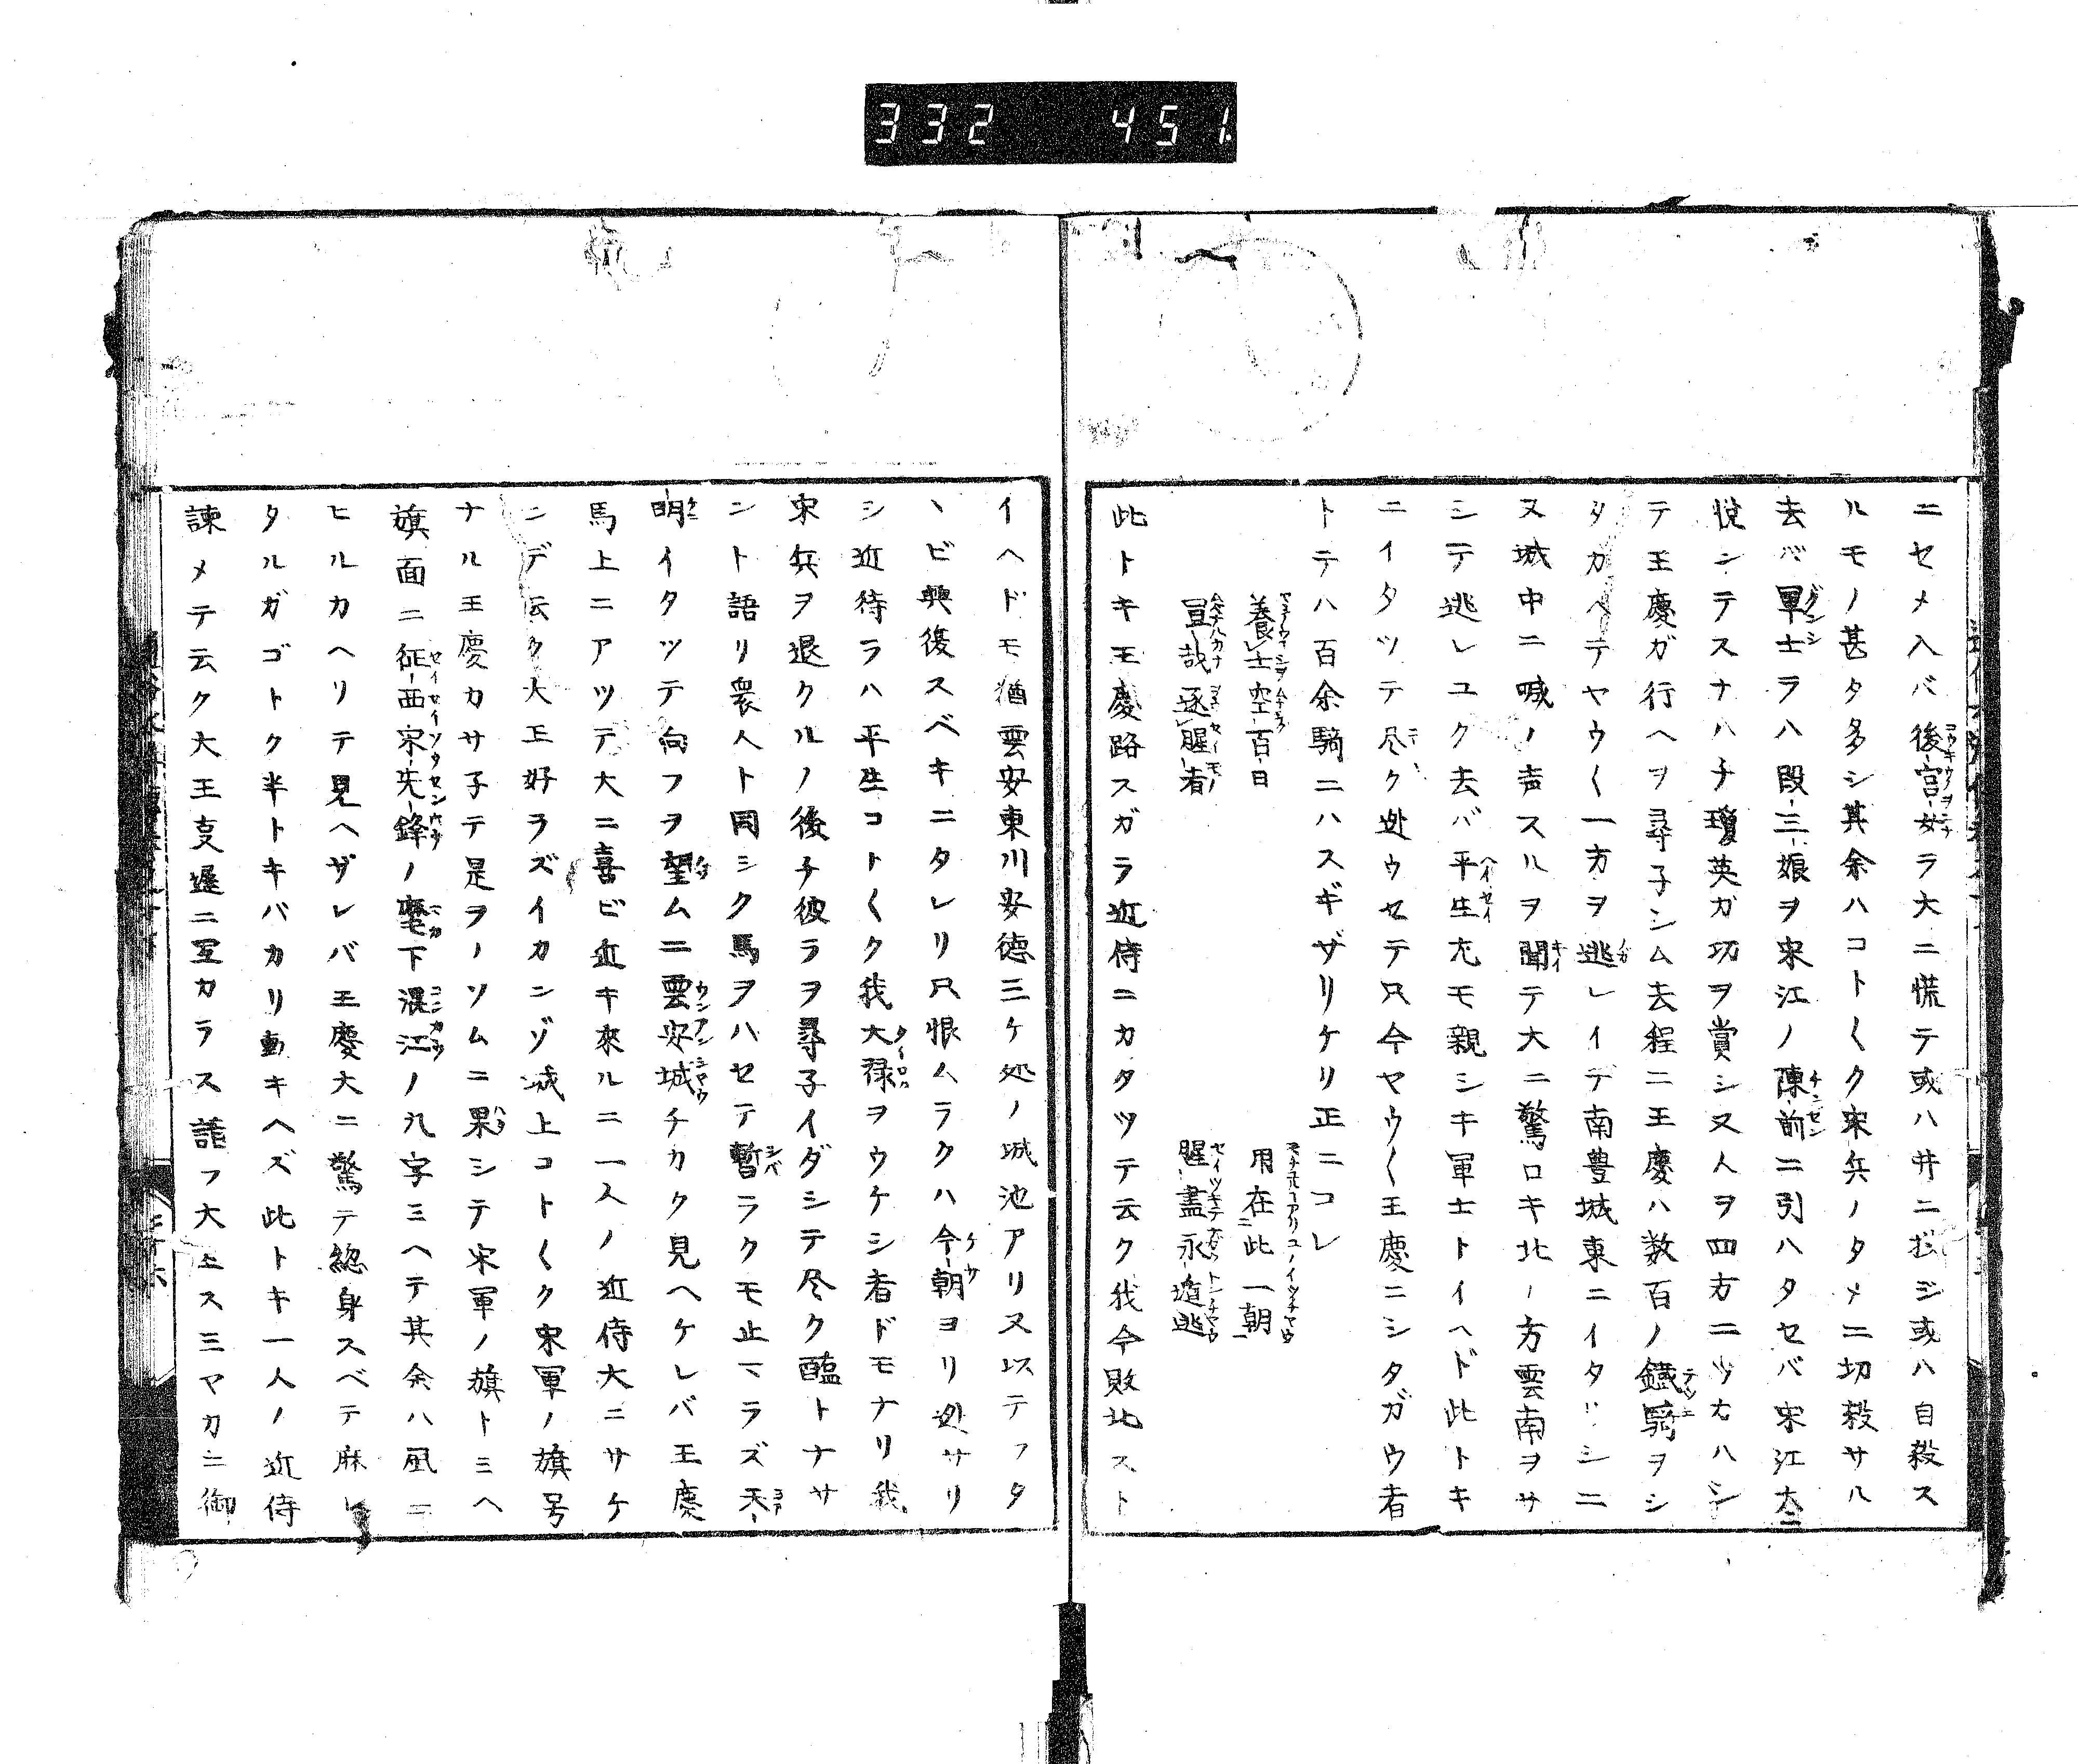 332 451
ニセメ入バ後宮女ラ大ニ慌テ或ハ井ニ投ジ或ハ自殺ス
ルモノ甚タ多シ其余ハコト〱ク宋兵ノタメニ切殺サル
去バ軍士ラハ段三娘ヲ宋江ノ陳前ニ引ハタセバ宋江大ニ
悦ンテスナハチ瓊英ガ功ヲ賞シ又人ヲ四方ニツカハシ
テ王慶ガ行ヘヲ尋子シム去程ニ王慶ハ数百ノ鐵騎ヲシ
タカヘテヤウ〱一方ヲ逃レイデ南豊城東ニイタリシニ
又城中ニ喊ノ声スルヲ聞テ大ニ驚ロキ北ノ方雲南ヲサ
シテ逃レユク去バ平生尤モ親シキ軍士トイヘド此トキ
ニイタツテ尽ク迯ウセテ只今ヤウ〱王慶ニシタガウ者
トテハ百余騎ニハスギザリケリ正ニコレ
養士空百日 用在此一朝
豈哉逐腥者 腥盡永遁逃
此トキ王慶路スガラ近侍ニカタツテ云ク我今敗北スト
イヘドモ猶雲安東川安徳三ケ処ノ城池アリ又以テフタ
ヽビ興復スベキニタレリ只恨ムラクハ今朝ヨリ迯サリ
シ近待ラハ平生コト〱ク我大禄ヲウケシ者ドモナリ我
宋兵ヲ退クルノ後チ彼ラヲ尋子イダシテ尽ク醢トナサ
ント語リ衆人ト同シク馬ヲハセテ暫ラクモ止マラズ天
明イタツテ向フヲ望ムニ雲安城チカク見ヘケレバ王慶
馬上ニアツテ大ニ喜ビ近キ來ルニ一人ノ近侍大ニサケ
ンデ云ク大王好ラズイカンゾ城上コト〱ク宋軍ノ旗号
ナル王慶カサ子テ是ヲノソムニ果シテ宋軍ノ旗トミヘ
旗面ニ征西宋先鋒ノ麾下混江ノ九字ミヘテ其余ハ風ニ
ヒルカヘリテ見ヘザレバ王慶大ニ驚テ総身スベテ麻レ
タルガゴトク半トキバカリ動キヘズ此トキ一人ノ近侍
諫メテ云ク大王支遅ニ宜カラス請フ大王スミヤカニ御